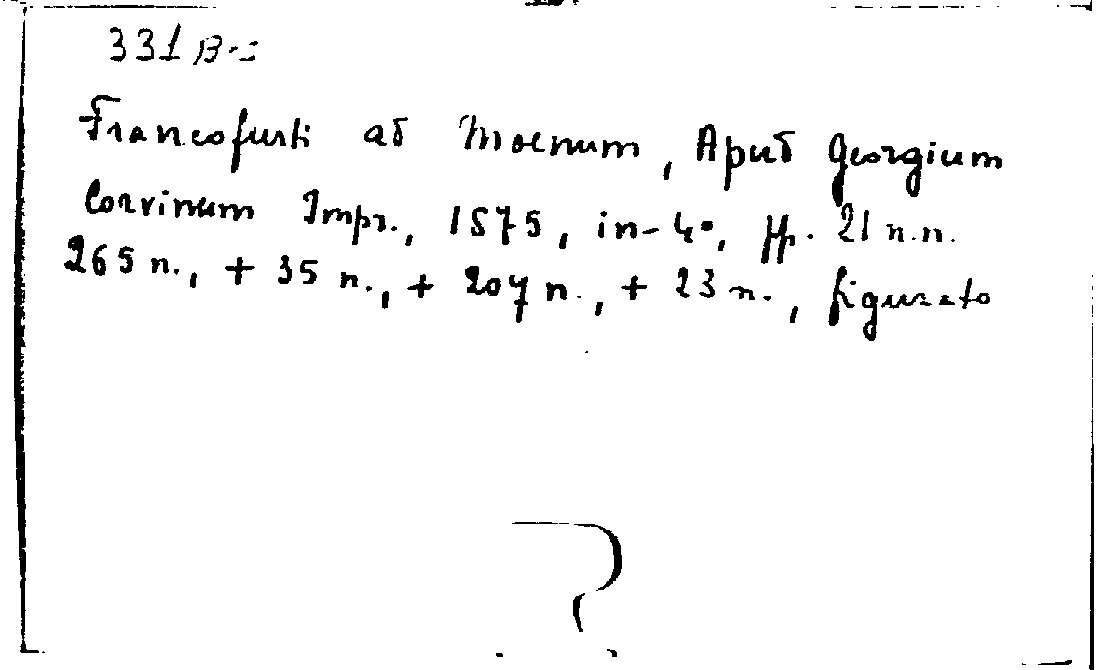 331 B-
Francofurti ad Moenum, Apud Georgium
Corvinum Impr., 1575, in-4°, pp. 21 n.n.
265 n., + 35 n., + 207 n., + 23 n., figurato
?